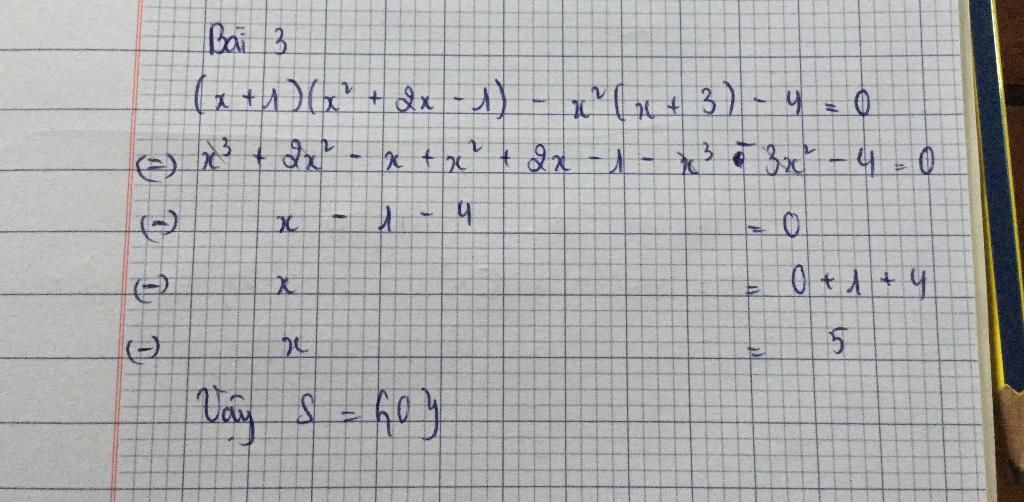 Bài 3
(x + 1)(x² + 2x - 1) - x²(x + 3) - 4 = 0
(=) x³ + 2x² - x + x² + 2x - 1 - x³ - 3x² - 4 = 0
(-) x - 1 - 4 = 0
(-) x = 0 + 1 + 4
(-) x = 5
Vậy S = {0}